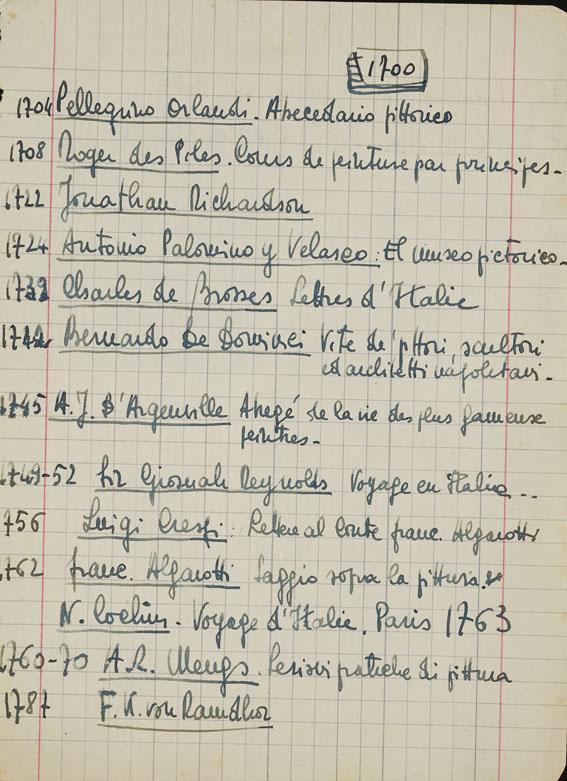 1700
1704 Pellegrino Orlandi. Abecedario pittorico
1708 Roger des Piles. Cours de peinture par principes-
1722 Jonathan Richardson
1724 Antonio Palomino y Velasco: El museo pictorico-
Charles de Brosses Lettres d'Italie
Bernardo De Dominici Vite de' pittori, scultori
ed architetti napoletani-
1745 A. J. D'Argenville Abregé de la vie des plus fameuse
peintres-
1749-52 Sir Giosuah Reynolds Voyage en Italie...
756 Luigi Crespi: Lettere al Conte franc. Algarotti
762 franc. Algarotti Saggio sopra la pittura.
N. Cochin. Voyage d'Italie. Paris 1763
1760-70 A.R. Mengs. Lezioni pratiche di pittura
1787 F. V. von Ramdhor